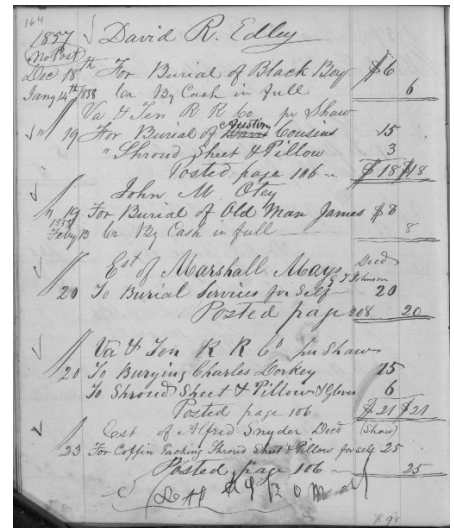 164
1857 David R. Edley
No Post
Decr 18th For Burial of Black Boy $6
Jany 14th 1858 Cr By Cash in full 6
Va & Ten R R Co pr Shaw
" 19 For Burial of Austin Cousins 15
" Shroud Sheet & Pillow 3
Posted page 106 $18 $18
John M Otey
" 19 For Burial of Old Man James $8
1858
Feby 13 Cr By Cash in full 8
Est of Marshall Mays Decd
20 To Burial Services for Self 20
Posted page 208 20
Va & Ten R R Co pr Shaw
20 To Burying Charles Lorkey 15
To Shroud Sheet & Pillow & Gloves 6
Posted page 106 $21 $21
Est of Alfred Snyder Decd (Shaw)
23 For Coffin Packing Shroud Sheet & Pillow for self 25
Posted page 106 25